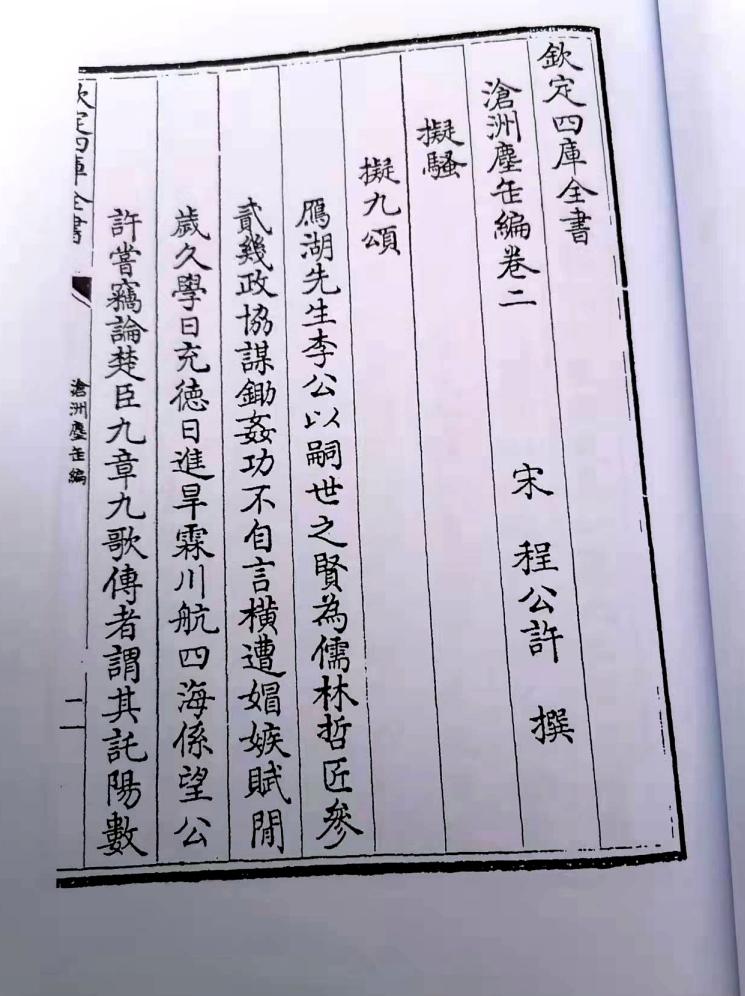 欽定四庫全書
滄洲塵缶編卷二
宋　程公許　撰
擬騷
擬九頌
鴈湖先生李公以嗣世之賢為儒林哲匠參
貳幾政協謀鋤姦功不自言橫遭媢嫉賦閒
歲久學日充徳日進旱霖川航四海係望公
許嘗竊論楚臣九章九歌傳者謂其託陽數
欽定四庫全書
滄洲塵缶編
二